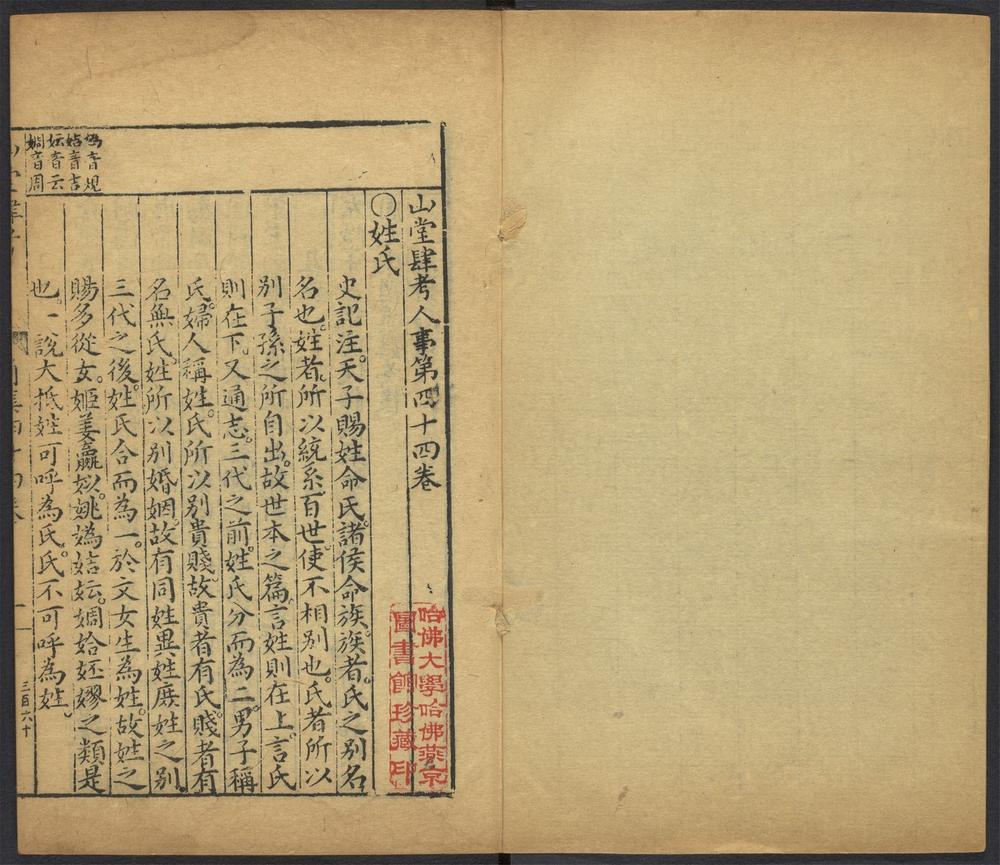 山堂肆考人事第四十四卷
○姓氏
史記注。天子賜姓命氏。諸侯命族。族者。氏之別名
名也。姓者。所以統系百世。使不相別也。氏者所以
別子孫之所自出。故世本之篇。言姓則在上。言氏
則在下。又通志。三代之前。姓氏分而為二。男子稱
氏。婦人稱姓。氏所以別貴賤。故貴者有氏。賤者有
名無氏。姓所以別婚姻。故有同姓異姓庶姓之別。
三代之後。姓氏合而為一。於文女生為姓。故姓之
賜多從女。姬姜嬴姒。姚嬀姞妘。婤姶㚰嫪之類是
也。一說大抵姓可呼為氏。氏不可呼為姓。
嬀音規
姞音吉
妘音云
婤音周
一
三百六十
哈佛大學哈佛燕京
圖書館珍藏印